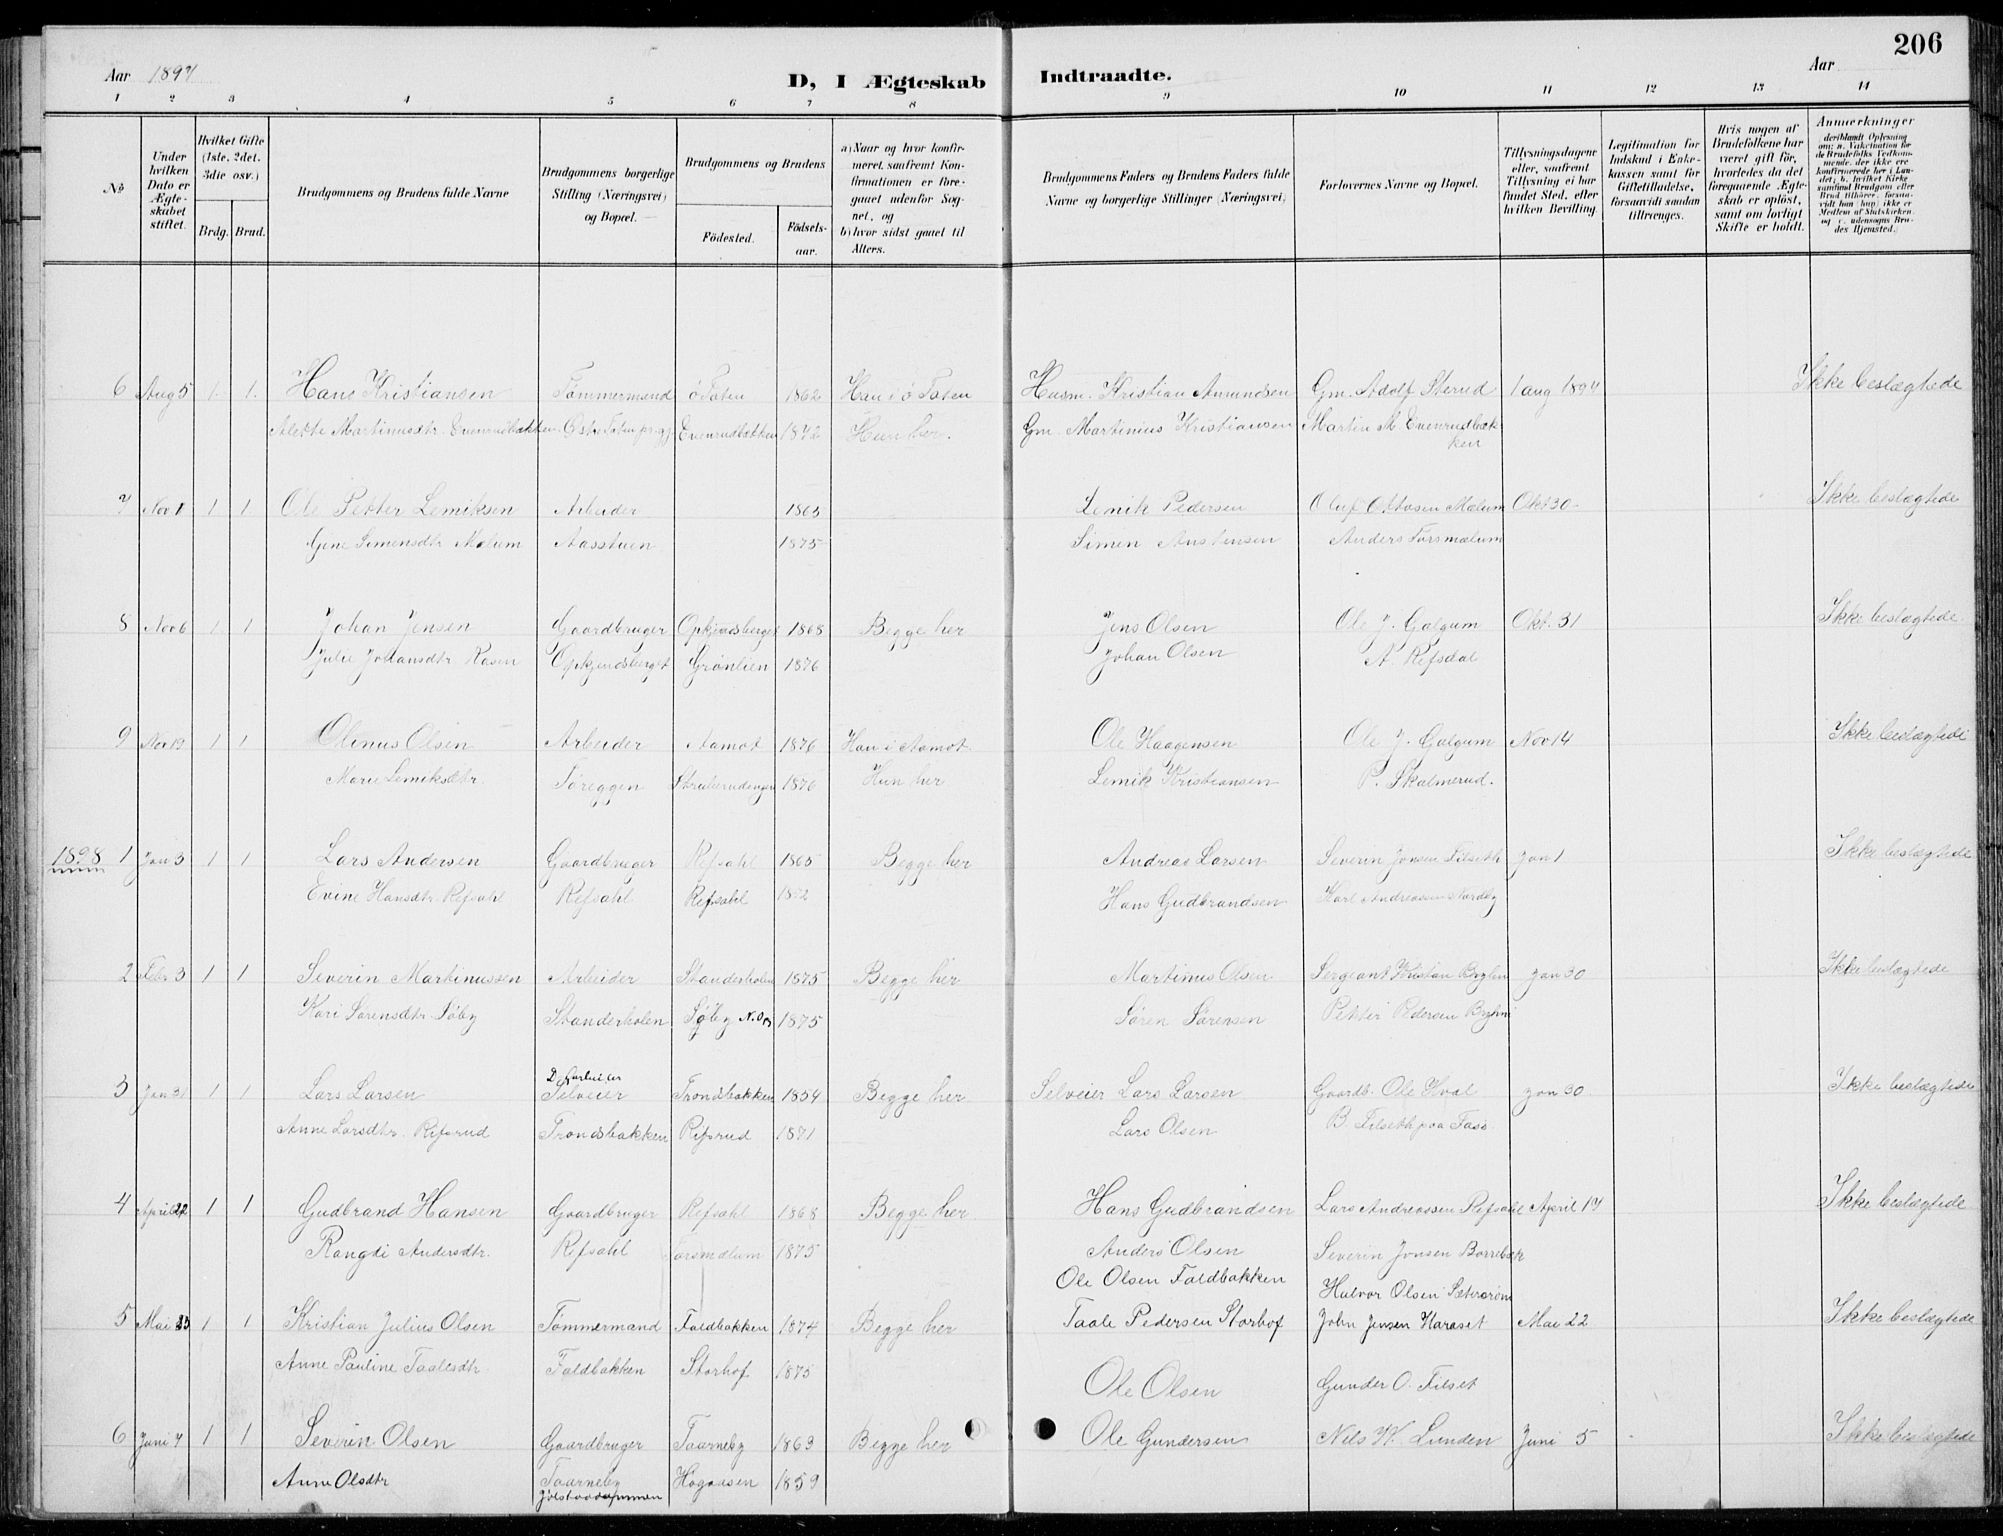 206
Aar 1897 D, I Ægteskab Indtraadte. Aar
1 2 3 4 5 6 7 8 9 10 11 12 13 14
No
Under hvilken Dato er Ægteskabet stiftet.
Hvilket Gifte (1ste, 2det, 3die osv.)
Brdg. Brud.
Brudgommens og Brudens fulde Navne
Brudgommens borgerlige Stilling (Næringsvei) og Bopæl.
Brudgommens og Brudens
Fødested. Fødselsaar.
a) Naar og hvor konfirmeret, saafremt Konfirmationen er foregaaet udenfor Sognet, og
b) hvor sidst gaaet til Alters.
Brudgommens Faders og Brudens Faders fulde Navne og borgerlige Stillinger (Næringsvei)
Forlovernes Navne og Bopæl.
Tillysningsdagene eller, saafremt Tillysning ei har fundet Sted, efter hvilken Bevilling.
Legitimation for Indskud i Enkekassen samt for Giftetilladelse, forsaavidt saadan tiltrenges.
Hvis nogen af Brudefolkene har været gift før, hvorledes da det foregaaende Ægteskab er opløst, samt om lovligt Skifte er holdt.
Anmerkninger
deriblandt Oplysning om: a. Vakcination for de Brudefolks Vedkommende, der ikke ere konfirmerede her i Landet; b. hvilket Kirkesamfund Brudgom eller Brud tilhører, forsaavidt han (hun) ikke er Medlem af Statskirken, og c. udensogns Brudes Hjemsted.
6 Aug 5 1. 1. Hans Kristiansen Tømmermand ø Toten 1862 Han i ø Toten Husm. Kristian Amundsen Gm. Adolf Sterud 1 aug 1897 Ikke beslægtede
Alette Martinusdtr. Evenrudbakken Østre Toten Evenrudbakken 1872 Hun her. Gm. Martinius Kristiansen Martin M Evenrudbakken
7 Nov 1 1 1 Ole Petter Lemiksen Arbeider 1863 Lemik Pedersen Oluf Ottosen Mælum Okt 30 Ikke beslægtede
Gine Simensdtr Mælum Aasstuen 1875 Simen Anstensen Anders Torsmælum
8 Nov 6 1 1 Johan Jensen Gaardbruger Opkjendsberget 1868 Begge her Jens Olsen Ole J. Galgum Okt. 31 Ikke beslægtede
Julie Johansdtr Kasen Opkjendsberget Grønlien 1876 Johan Olsen A. Refsdal
9 Nov 19 1 1 Olinus Olsen Arbeider Aamot 1876 Han i Aamot Ole Haagensen Ole J. Galgum Nov 14 Ikke beslægtede
Marie Lemiksdtr. Toreggen 1876 Hun her Lemik Kristiansen P. Skalmerud.
1898 1 Jan 3 1 1 Lars Andersen Gaardbruger Refsahl 1865 Begge her Andreas Larsen Severin Jonsen Filseth Jan 1 Ikke beslægtede
Evine Hansdtr. Refsahl Refsahl Refsahl 1872 Hans Gudbrandsen Karl Andreassen Nordby
2 Febr 3 1 1 Severin Martinussen Arbeider Standerholen 1875 Begge her Martinus Olsen Sergeant Kristian Bryhni Jan 30 Ikke beslægtede
Kari Sørensdtr. Søby Standerholen Søby N. Od 1875 Søren Sørensen Petter Pedersen Bryhni
3 Jan 31 1 1 Lars Larsen Selveier Trondbakken 1854 Begge her Selveier Lars Larsen Gaardb. Ole Hval Jan 30 Ikke beslægtede
Anne Larsdtr. Refsrud Trondsbakken Refsrud 1871 Lars Olsen B. Filseth paa Faso
4 April 22 1 1 Gudbrand Hansen Gaardbruger Refsahl 1868 Begge her Hans Gudbrandsen Lars Andreassen Refsahl April 17 Ikke beslægtede
Rangdi Andersdtr. Refsahl Torsmælum 1875 Anders Olsen Severin Jonsen Borrebæk
Ole Olsen Faldbakken Halvor Olsen
5 Mai 23 1 1 Kristian Julius Olsen Tømmermand Faldbakken 1874 Begge her Taale Pedersen Storhof John Jensen Haraset Mai 22 Ikke beslægtede
Anne Pauline Taalesdtr. Faldbakken Storhof 1875 Ole Olsen Gunder O. Filset
6 Juni 7 1 1 Severin Olsen Gaardbruger Taarneby 1863 Begge her Ole Gundersen Nils W. Lunden Juni 5 Ikke beslægtede
Anne Olsdtr Taarneby Høgaasen 1859